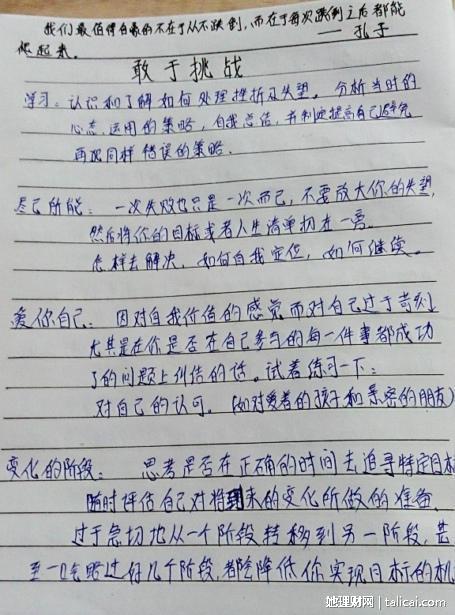 我们最值得自豪的不在于从不跌倒,而在于每次跌倒之后都能
爬起来。 —— 孔子
敢于挑战
学习:认识和了解如何处理挫折及失望。分析当时的
心态,运用的策略,自我总结,并制定提高自己避免
再犯同样错误的策略.
尽己所能:一次失败也只是一次而已,不要放大你的失望,
然后将你的目标或者人生清单扔在一旁。
怎样去解决,如何自我定位,如何继续。
爱你自己:因对自我价值的感觉而对自己过于苛刻
尤其是在你是否在自己参与的每一件事都成功
了的问题上纠结的话。试着练习一下:
对自己的认可。(如对爱着的孩子和亲密的朋友)
变化的阶段:思考是否在正确的时间去追寻特定目标
随时评估自己对将到来的变化所做的准备.
过于急切地从一个阶段转移到另一阶段,甚
至一口气略过好几个阶段,都会降低你实现目标的机
她理财网 | talicai.com